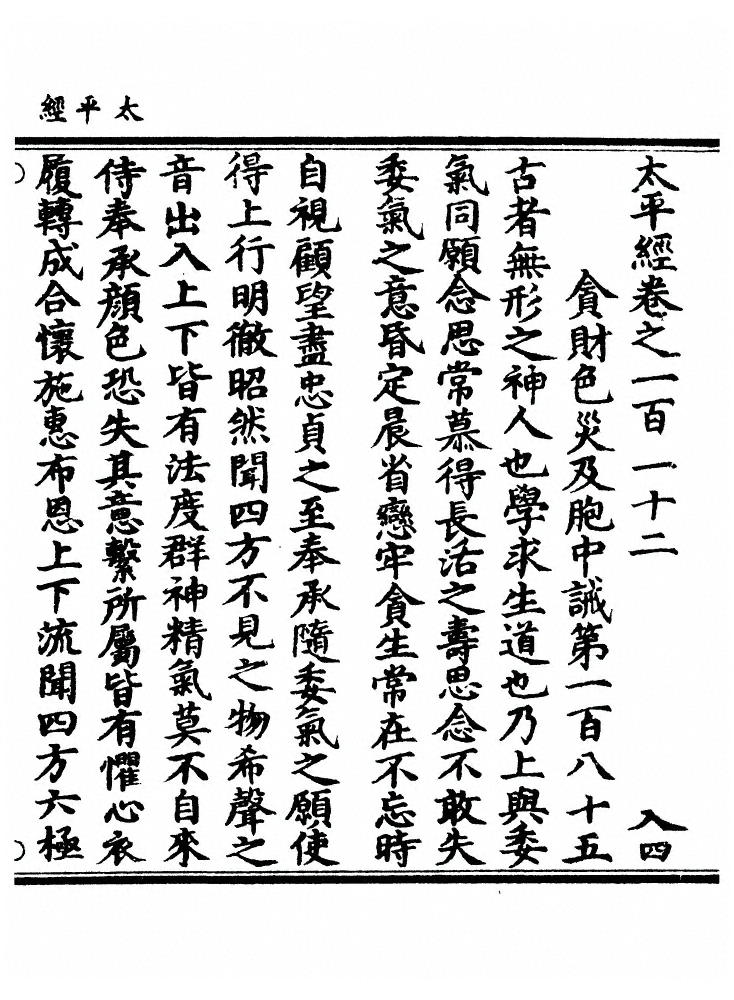 太平經
太平經卷之一百一十二 入四
貪財色災及胞中誡第一百八十五
古者無形之神人也學求生道也乃上與委
氣同願念思常慕得長活之壽思念不敢失
委氣之意昏定晨省戀牢貪生常在不忘時
自視顧望盡忠貞之至奉承隨委氣之願使
得上行明徹昭然聞四方不見之物希聲之
音出入上下皆有法度群神精氣莫不自來
侍奉承顏色恐失其意繫所屬皆有懼心衣
履轉成合懷施惠布恩上下流聞四方六極